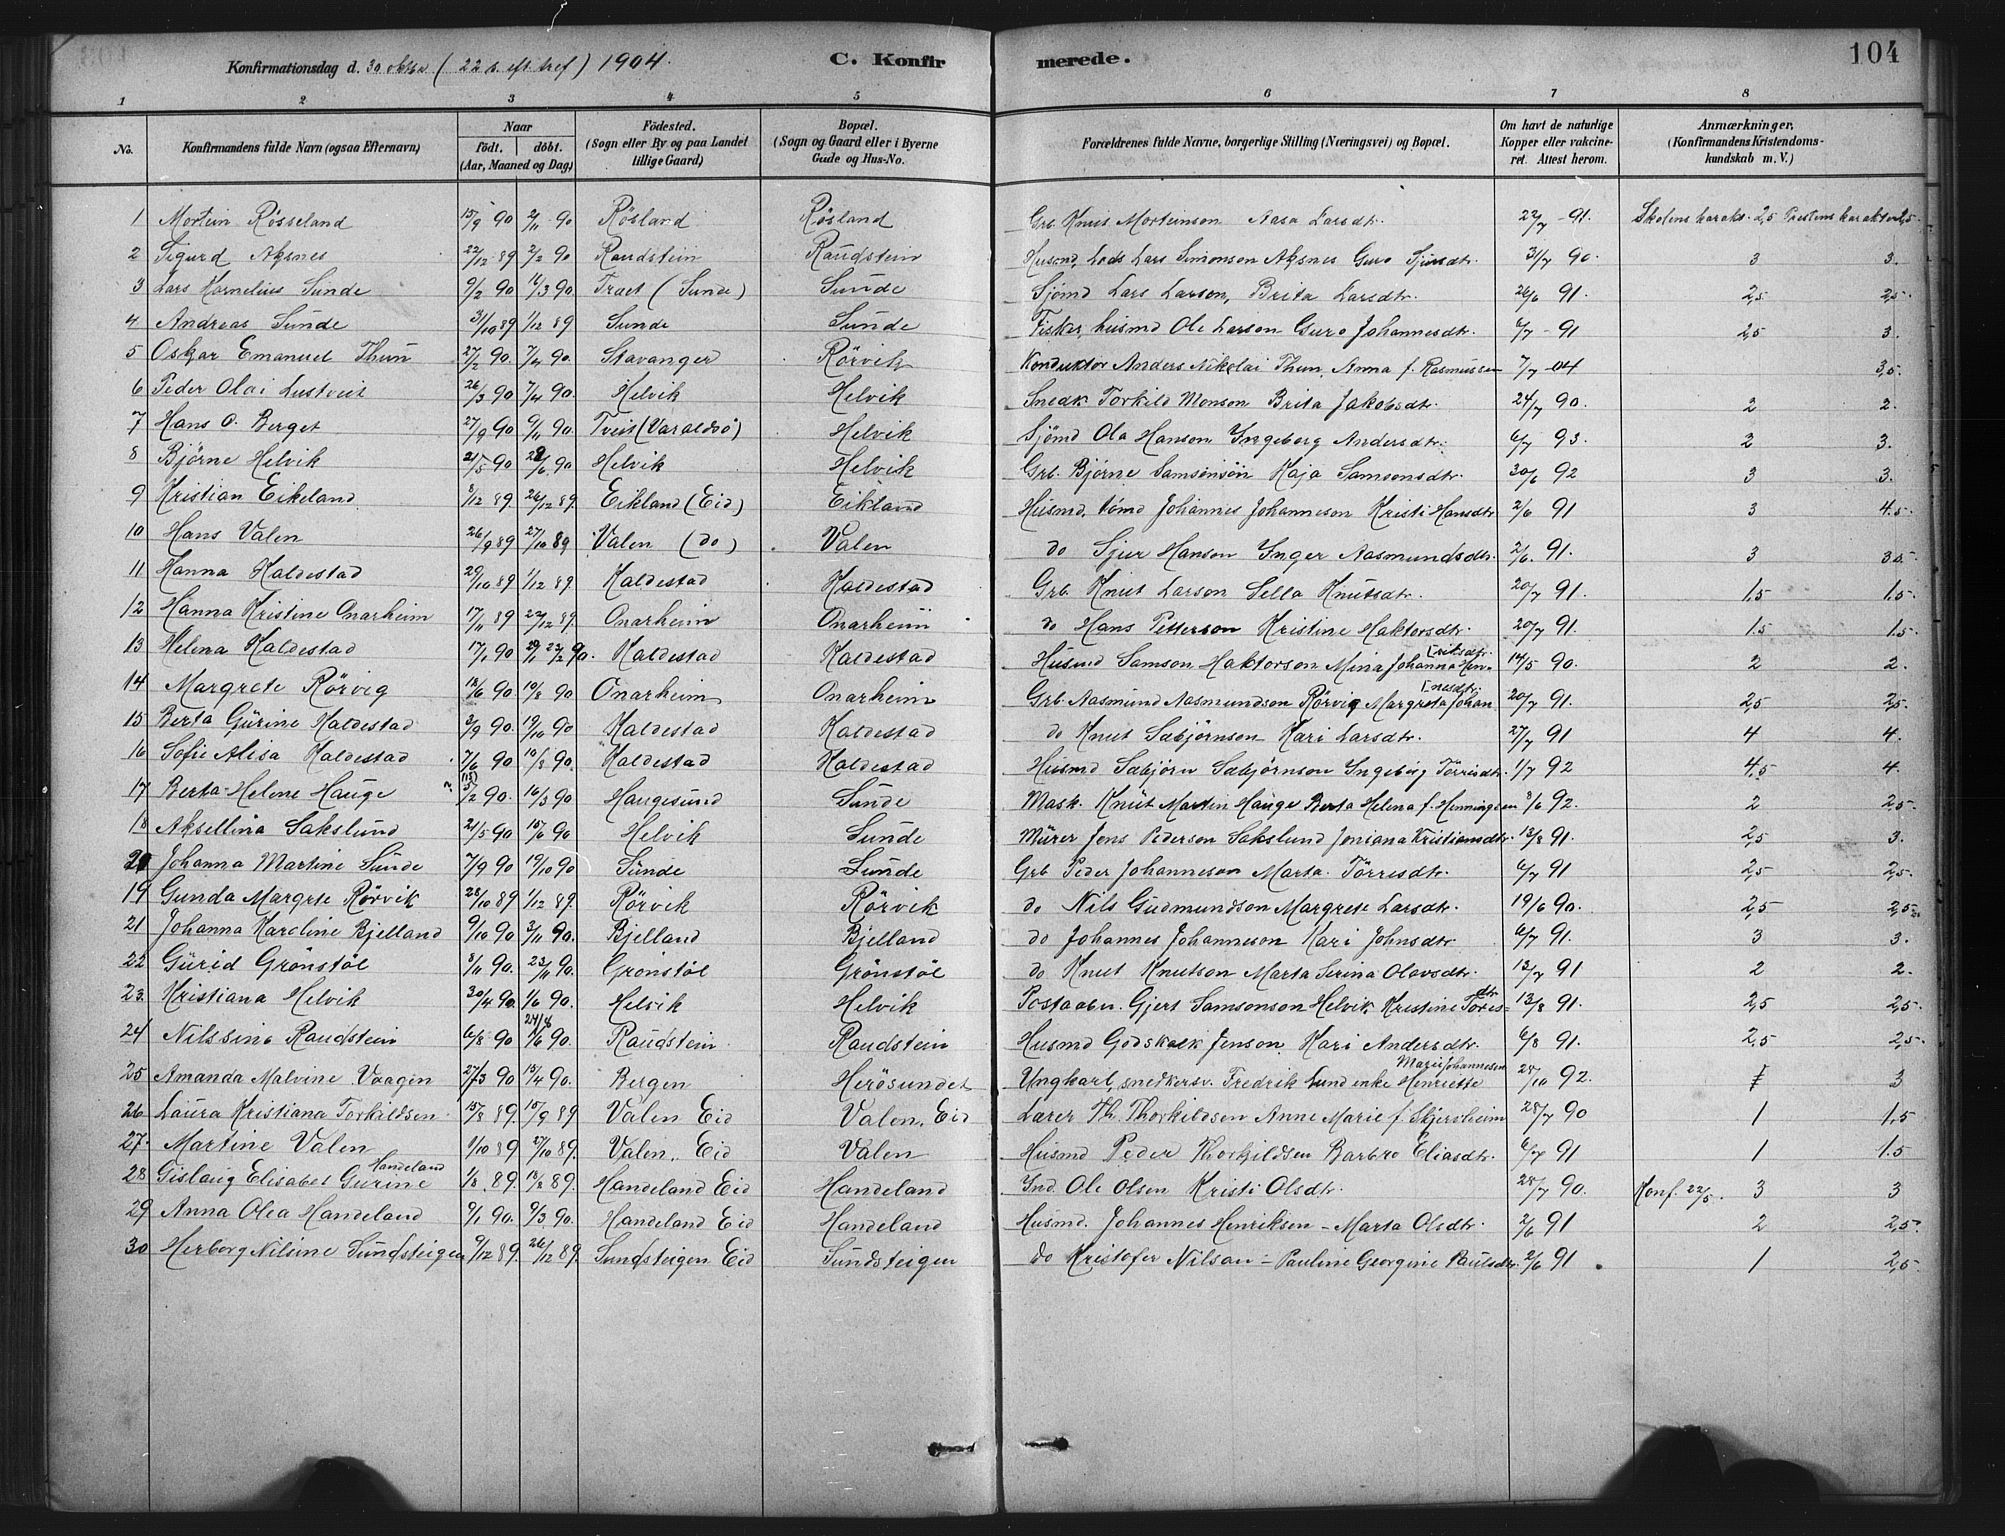 104
Konfirmationsdag d. 30 oktbr ( 22 s. eft tref ) 1904. C. Konfir merede.
1 2 3 4 5 6 7 8
No. Konfirmandens fulde Navn (ogsaa Efternavn) Naar födt. döbt. (Aar, Maaned og Dag) Födested. (Sogn eller By og paa Landet tillige Gaard) Bopæl. (Sogn og Gaard eller i Byerne Gade og Hus-No. Forældrenes fulde Navne, borgerlige Stilling (Næringsvei) og Bopæl. Om havt de naturlige Kopper eller vakcineret. Attest herom. Anmærkninger. (Konfirmandens Kristendomskundskab m. V.)
1 Mortein Rösseland 15/9 90 2/11 90 Rösland Rösland Grb. Knut Mortenson Aasa Larsdtr. 22/7 - 91. Skolens karakt. 2,5 Prestens karakter 2,5.
2 Sigurd Aksnes 22/12 89 2/2 90 Raudstein Raudstein Husmd, Lods Lars Simonson Aksnes Guro Sjursdtr. 31/7 90. 3 3.
3 Lars Kornelius Sunde 9/2 90 16/3 90 Traet (Sunde) Sunde Sjömd Lars Larson, Brita Larsdtr. 26/6 91. 2,5 2,5.
4 Andreas Sunde 31/10 89 1/12 89 Sunde Sunde Fisker, husmd Ole Larson Guro Johannesdtr. 6/7 - 91 2,5 3.
5 Oskar Emanuel Thun 27/2 90. 7/4 90. Stavanger Rörvik Konduktör Anders Nikolai Thun, Anna f. Rasmussen 7/7 -04 3,5.
6 Peder Olai Lustveit 26/3 90 7/4 90. Helvik Helvik Snedk. Torkild Monson Brita Jakobsdtr. 24/7 90. 2 2.
7 Hans O. Berget 27/9 90 9/11 90. Tveit (Varaldsö) Helvik Sjömd Ola Hanson Ingeborg Andersdtr. 6/7 93. 2 3.
8 Björne Helvik 21/5 90 28/6 90 Helvik Helvik Grb. Björne Samsonson Kaja Samsonsdtr. 30/6 92 3 3.
9 Kristian Eikeland 8/12 89. 26/12 89. Eikland (Eid) Eikland Husmd, tömd Johannes Johanneson Kristi Hansdtr 2/6 91 3 4.5.
10 Hans Valen 26/9 89 27/10 89 Valen (do) Valen do Sjur Hanson Inger Aasmundsdtr. 2/6. 91. 3 3.5.
11 Hanna Haldestad 29/10 89 1/12 89 Haldestad Haldestad Grb. Knut Larson Sella Knutsdtr. 20/7 91. 1,5 1,5.
12 Hanna Kristine Onarheim 17/11 89 22/12 89. Onarheim Onarheim do Hans Petterson Kristine Haktorsdtr. 20/7 91. 1.5 1.5.
13 Helena Haldestad 17/1 90 23/2 90. Haldestad Haldestad Husmd Samson Haktorson Mina Johanna Henriksdtr. 14/5 90. 2 2.
14 Margrete Rörvig 18/6 90 10/8 90 Onarheim Onarheim Grb. Aasmund Aasmundson Rörvig Margreta Johannesdtr. 20/7 91. 2,5 2,5.
15 Berta Gürine Haldestad 3/9 90 19/10 90 Haldestad Haldestad do Knut Sæbjörnson Kari Larsdtr. 27/7 91 4 4.
16 Sofie Alisa Haldestad 7/6 90 10/8 90. Haldestad Haldestad Husmd Sæbjörn Sæbjörnson Ingeborg Törrisdtr. 1/7 92 4.5 4.
17 Berta Helene Hauge 5/2 90. 16/3 90 Haugesund Sunde Mask. Knut Martin Hauge Berta Helena f. Henningsen 8/6 92. 2 2.5
18 Aksellina Sakslund 21/5 90 15/6 90 Helvik Sunde Mürer Jens Pederson Sakslund Jensiana Kristiansdtr 13/8 91. 2,5 3.
20 Johanna Martine Sunde 7/9 90 19/10 90 Sunde Sunde Grb Peder Johanneson Marta Törresdtr. 6/7 91 2.5 2,5.
19 Gunda Margrete Rörvik 28/10 89 1/12 89. Rörvik Rörvik do Nils Gudmundson Margrete Larsdtr. 19/6 90. 2,5 2,5
21 Johanna Karoline Bjelland 9/10 90 3/11 90. Bjelland Bjelland do Johannes Johanneson Kari Johnsdtr. 6/7 91. 3 3.
22 Gürid Grönstöl 8/11 90. 23/11 90. Grönstöl Grönstöl do Knut Knutson Marta Serina Olavsdtr. 13/7 91 2 2.
23. Kristiana Helvik 30/4 90. 1/6 90. Helvik Helvik Postaaber. Gjert Samsonson Helvik Kristine Törresdtr 13/8 91. 2,5 2,5.
24 Nilssine Raudstein 6/8 90 90. Raudstein Raudstein Husmd Godskalk Jenson Kari Andersdtr. 6/8 91. 2,5 2,5.
25 Amanda Malvine Vaagen 27/3 90 13/4 90. Bergen Herösundet Ungkarl, snedkersv. Fredrik Lund enke Henriette Marie Johannesen 28/10 92. 3
26 Laura Kristiana Torkildsen. 15/8 89. 15/9 89 Valen Eid Valen, Eid Lærer Th. Thorkildsen Anne Marie f. Skjersheim 28/7 90 1 1,5
27. Martine Valen 1/10 89 27/10 89. Valen, Eid Valen Husmd Peder Thorkildsen Barbro Eliasdtr. 6/7 91 1 1.5
28 Gislaug Elisabet Gurine Handeland 1/8. 89. 18/8 89. Handeland Eid Handeland Ind. Ole Olsen Kristi Olsdtr. 28/7 90. Konf. 22/5. 3 3
29 Anna Olea Handeland 9/1 90. 9/3 90. Handeland Eid Handeland Husmd. Johannes Henriksen - Marta Olsdtr. 2/6 91 2 2,5.
30 Herborg Nilsine Sundsteigen 9/12 89. 26/12 89. Sundsteigen Eid Sundsteigen do Kristofer Nilsen - Pauline Georgine Paulsdtr. 2/6 91 1 2,5.